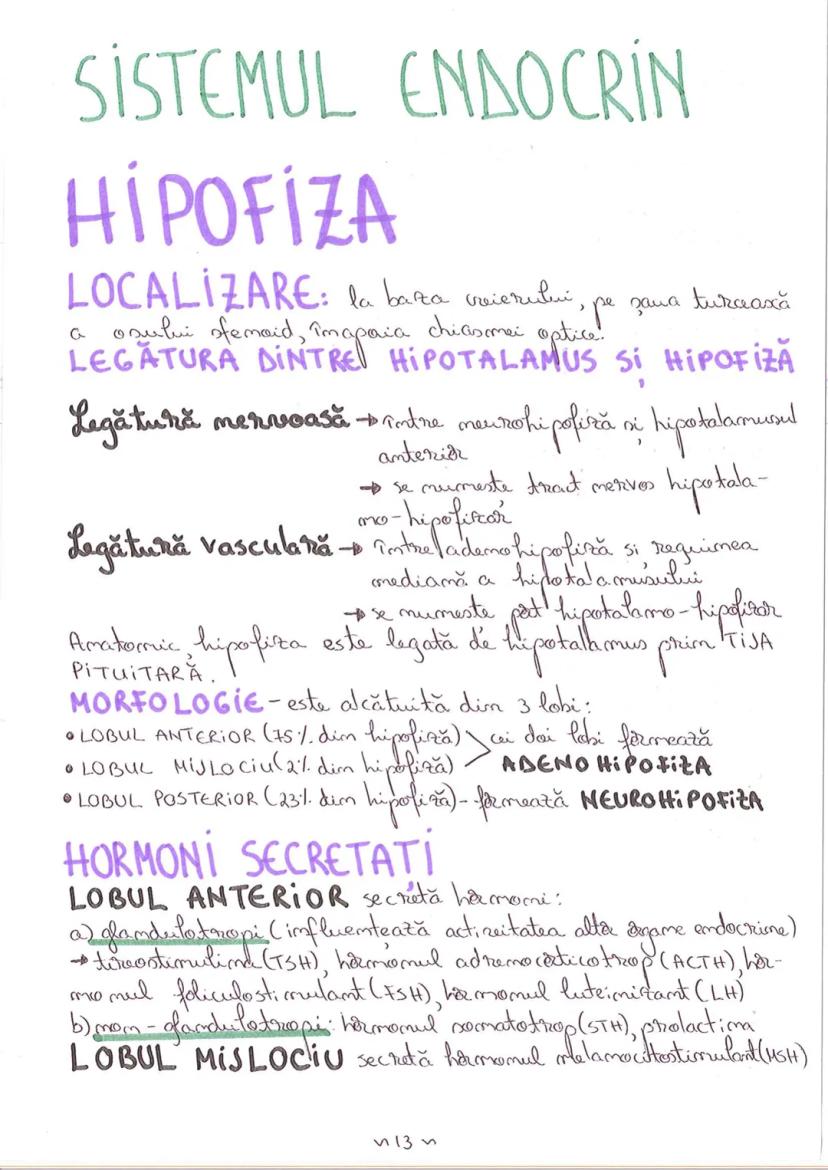 SISTEMUL ENDOCRIN
HIPOFIZA
LOCALIZARE: la baza creierului, pe șaua turcească
a osului sfenoid, înapoia chiasmei optice.
LEGĂTURA DINTRE HIPOTALAMUS ȘI HIPOFIZĂ
Legătură nervoasă → între neurohipofiză și hipotalamusul
anterior
→ se numește tract nervos hipotala-
mo-hipofizar
Legătură vasculară → între adenohipofiză și regiunea
mediană a hipotalamusului
→ se numește port hipotalamo-hipofizar
Anatomic, hipofiza este legată de hipotalamus prin TIJA
PITUITARĂ.
MORFOLOGIE - este alcătuită din 3 lobi:
• LOBUL ANTERIOR (75% din hipofiză) > cei doi lobi formează
• LOBUL MIJLOCIU (2% din hipofiză) ADENOHIPOFIZA
• LOBUL POSTERIOR (23% din hipofiză) - formează NEUROHIPOFIZA
HORMONI SECRETAȚI
LOBUL ANTERIOR secretă hormoni:
a) glandulotropi (influențează activitatea altor organe endocrine)
→ tireostimulina (TSH), hormonul adrenocorticotrop (ACTH), hor-
monul foliculostimulant (FSH), hormonul luteinizant (LH)
b) non-glandulotropi: hormonul somatotrop (STH), prolactina
LOBUL MIJLOCIU secretă hormonul melanocitostimulant (MSH)
~ 13 ~